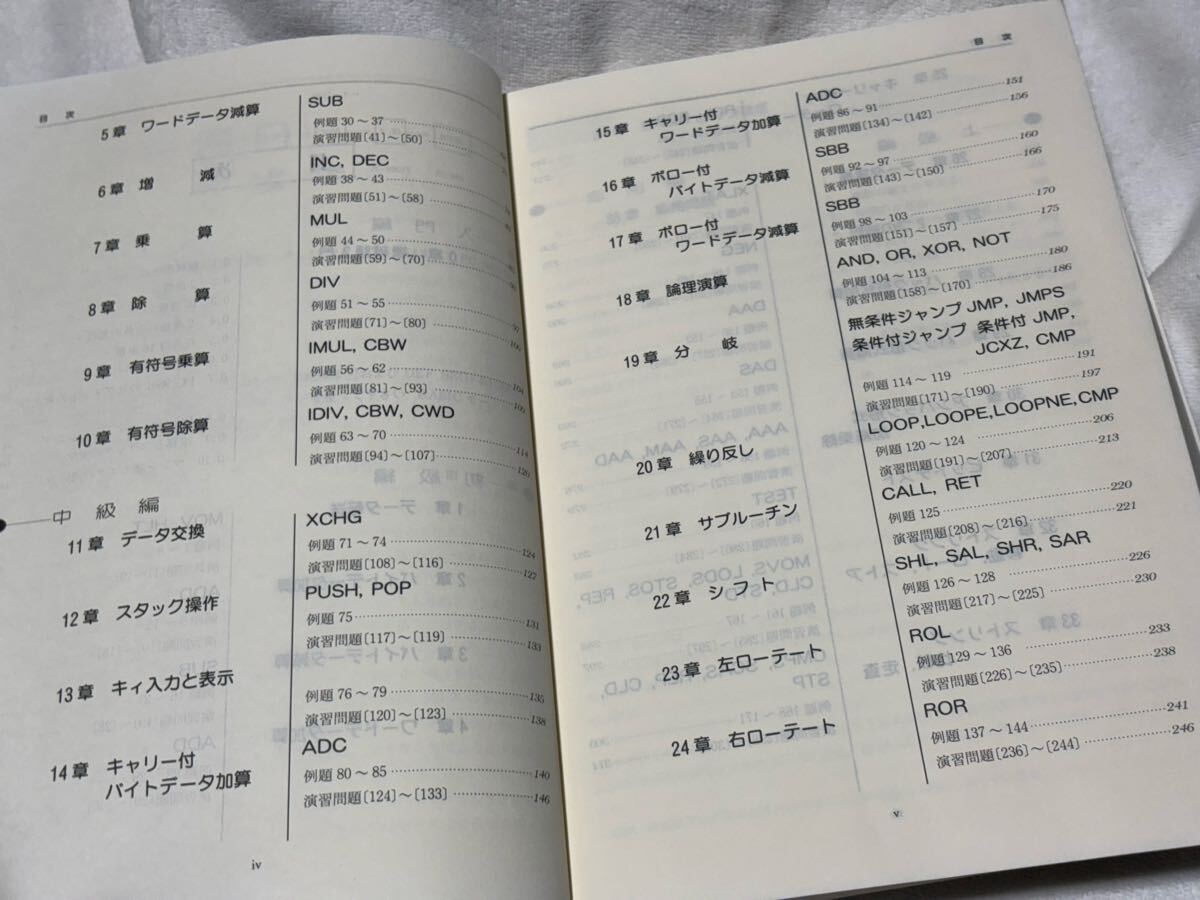 目 次
5章 ワードデータ減算
SUB
例題 30～37
演習問題〔41〕～〔50〕
6章 増 減
INC, DEC
例題 38～43
演習問題〔51〕～〔58〕
7章 乗 算
MUL
例題 44～50
演習問題〔59〕～〔70〕
8章 除 算
DIV
例題 51～55
演習問題〔71〕～〔80〕
9章 有符号乗算
IMUL, CBW
例題 56～62
演習問題〔81〕～〔93〕
10章 有符号除算
IDIV, CBW, CWD
例題 63～70 114
演習問題〔94〕～〔107〕 120
中級編
11章 データ交換
XCHG
例題 71～74 124
演習問題〔108〕～〔116〕 127
12章 スタック操作
PUSH, POP
例題 75 131
演習問題〔117〕～〔119〕 133
13章 キィ入力と表示
例題 76～79 135
演習問題〔120〕～〔123〕 138
14章 キャリー付
バイトデータ加算
ADC
例題 80～85 140
演習問題〔124〕～〔133〕 146
iv
目 次
15章 キャリー付
ワードデータ加算
ADC
例題 86～91 151
演習問題〔134〕～〔142〕 156
16章 ボロー付
バイトデータ減算
SBB
例題 92～97 160
演習問題〔143〕～〔150〕 166
17章 ボロー付
ワードデータ減算
SBB
例題 98～103 170
演習問題〔151〕～〔157〕 175
18章 論理演算
AND, OR, XOR, NOT
例題 104～113 180
演習問題〔158〕～〔170〕 186
19章 分 岐
無条件ジャンプ JMP, JMPS
条件付ジャンプ 条件付 JMP,
JCXZ, CMP
例題 114～119 191
演習問題〔171〕～〔190〕 197
20章 繰り反し
LOOP,LOOPE,LOOPNE,CMP
例題 120～124 206
演習問題〔191〕～〔207〕 213
21章 サブルーチン
CALL, RET
例題 125 220
演習問題〔208〕～〔216〕 221
22章 シフト
SHL, SAL, SHR, SAR
例題 126～128 226
演習問題〔217〕～〔225〕 230
23章 左ローテート
ROL
例題 129～136 233
演習問題〔226〕～〔235〕 238
24章 右ローテート
ROR
例題 137～144 241
演習問題〔236〕～〔244〕 246
v